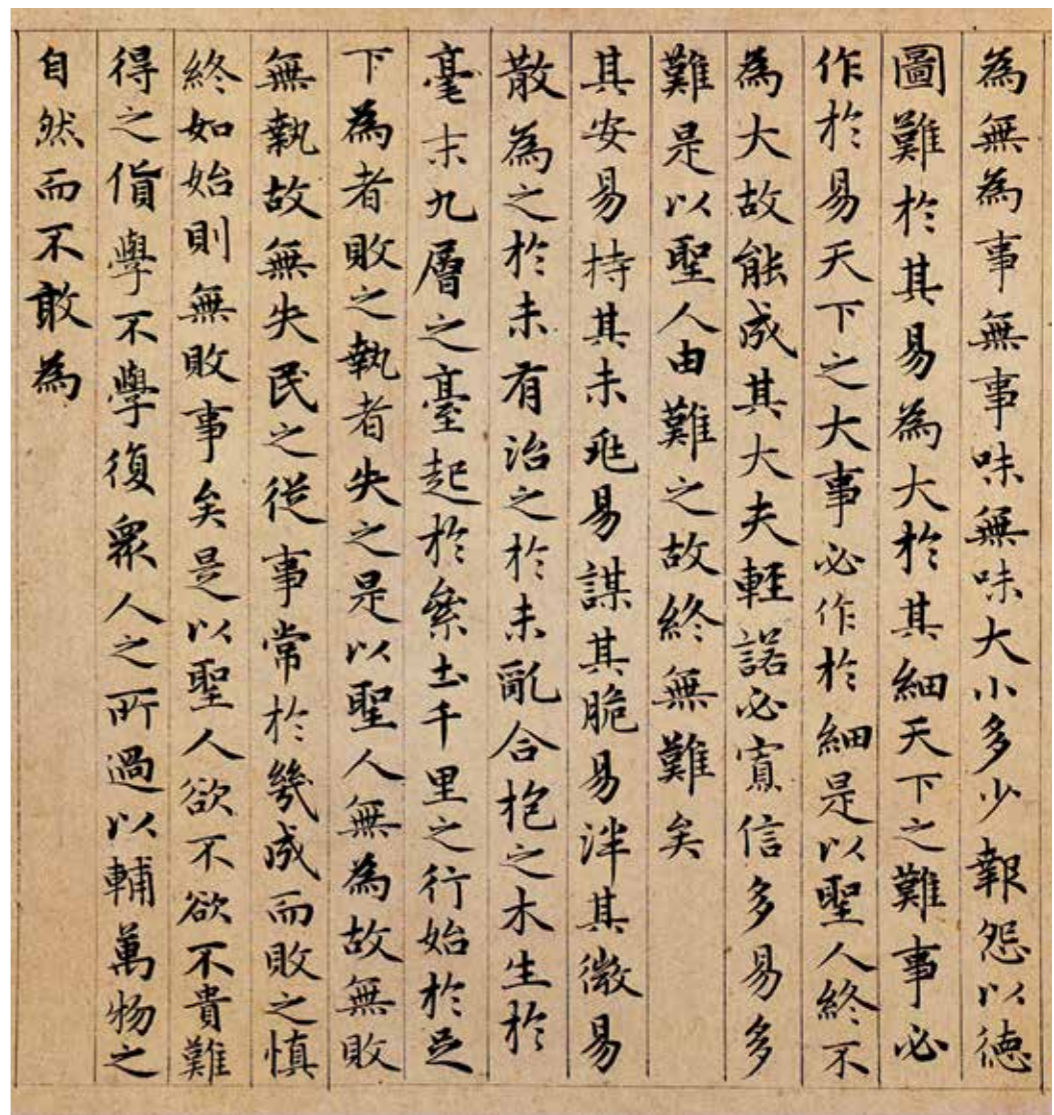 為無為事無事味無味大小多少報怨以德
圖難於其易為大於其細天下之難事必
作於易天下之大事必作於細是以聖人終不
為大故能成其大夫輕諾必寡信多易多
難是以聖人由難之故終無難矣
其安易持其未兆易謀其脆易泮其微易
散為之於未有治之於未亂合抱之木生於
毫末九層之臺起於絫土千里之行始於足
下為者敗之執者失之是以聖人無為故無敗
無執故無失民之從事常於幾成而敗之慎
終如始則無敗事矣是以聖人欲不欲不貴難
得之貨學不學復眾人之所過以輔萬物之
自然而不敢為